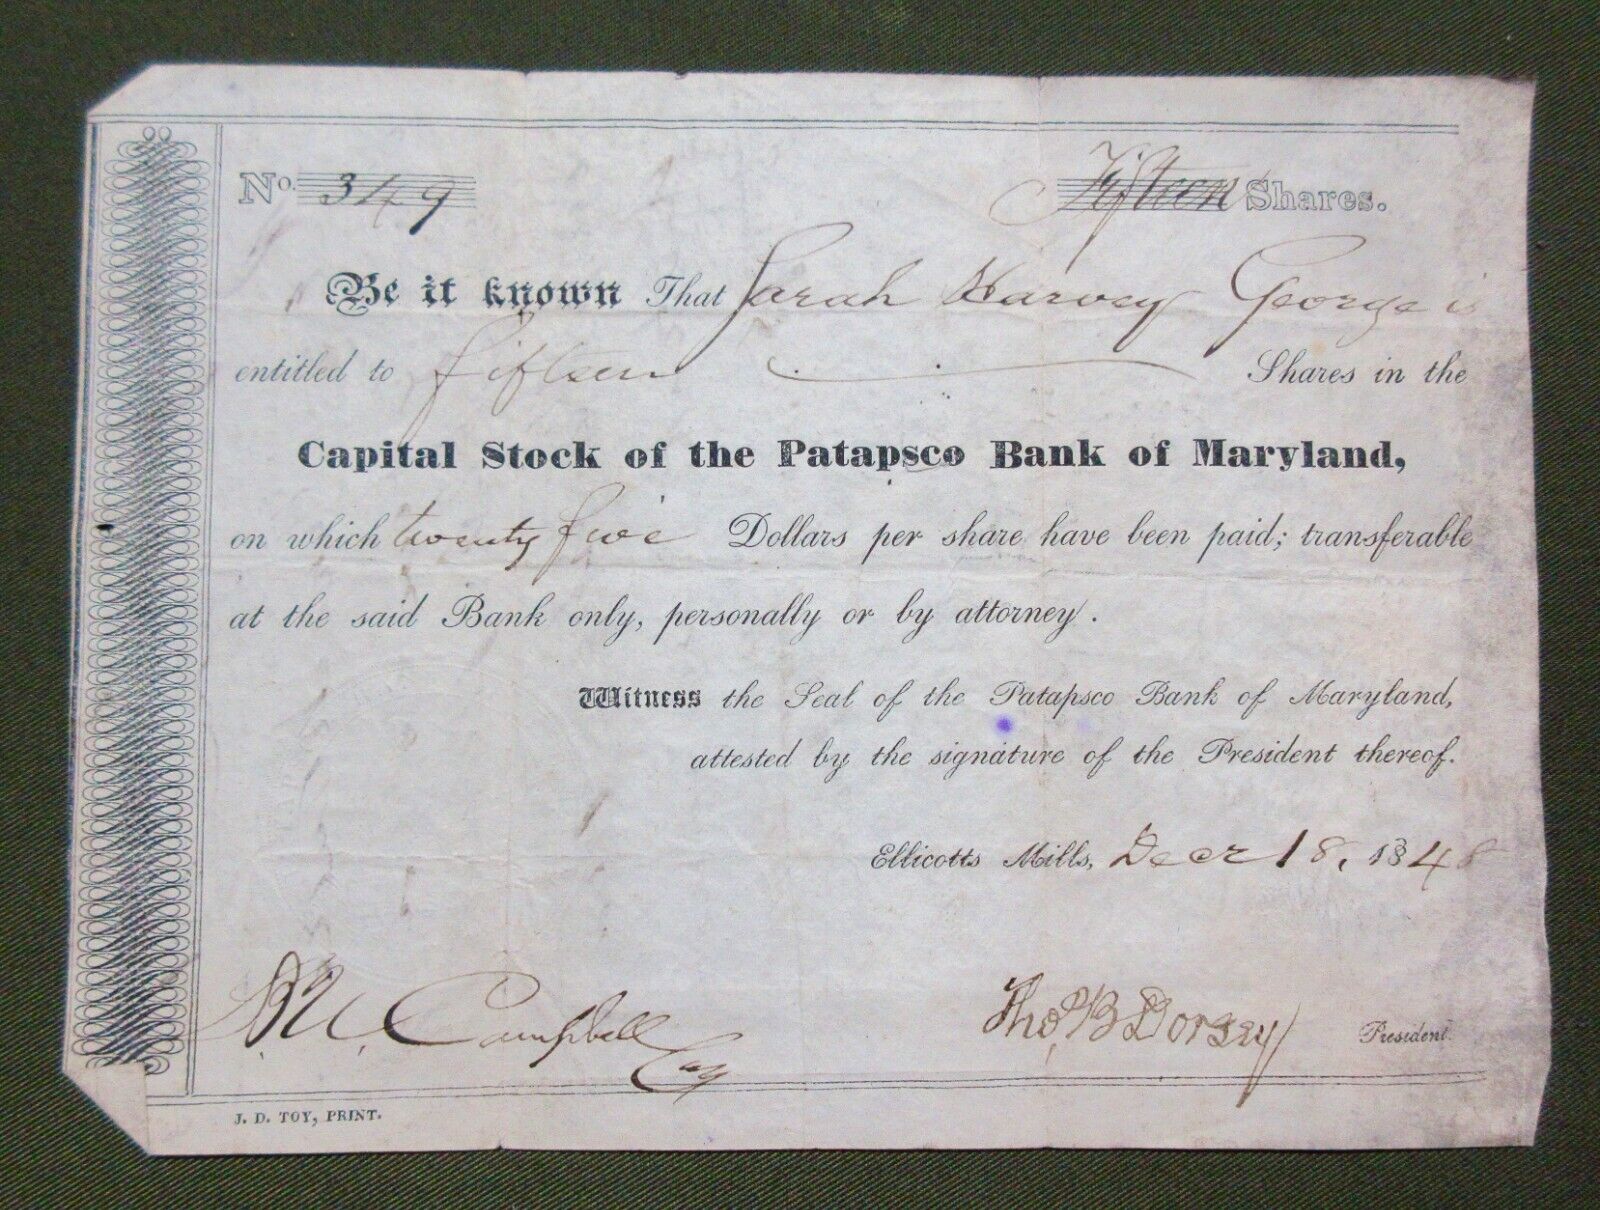 No. 349 Fifteen Shares.
Be it known That Sarah Harvey George is
entitled to fifteen Shares in the
Capital Stock of the Patapsco Bank of Maryland,
on which twenty five Dollars per share have been paid; transferable
at the said Bank only, personally or by attorney.
Witness the Seal of the Patapsco Bank of Maryland,
attested by the signature of the President thereof.
Ellicotts Mills, Decr 18, 1848
Campbell
Thos. B Dorsey President.
J. D. TOY, PRINT.